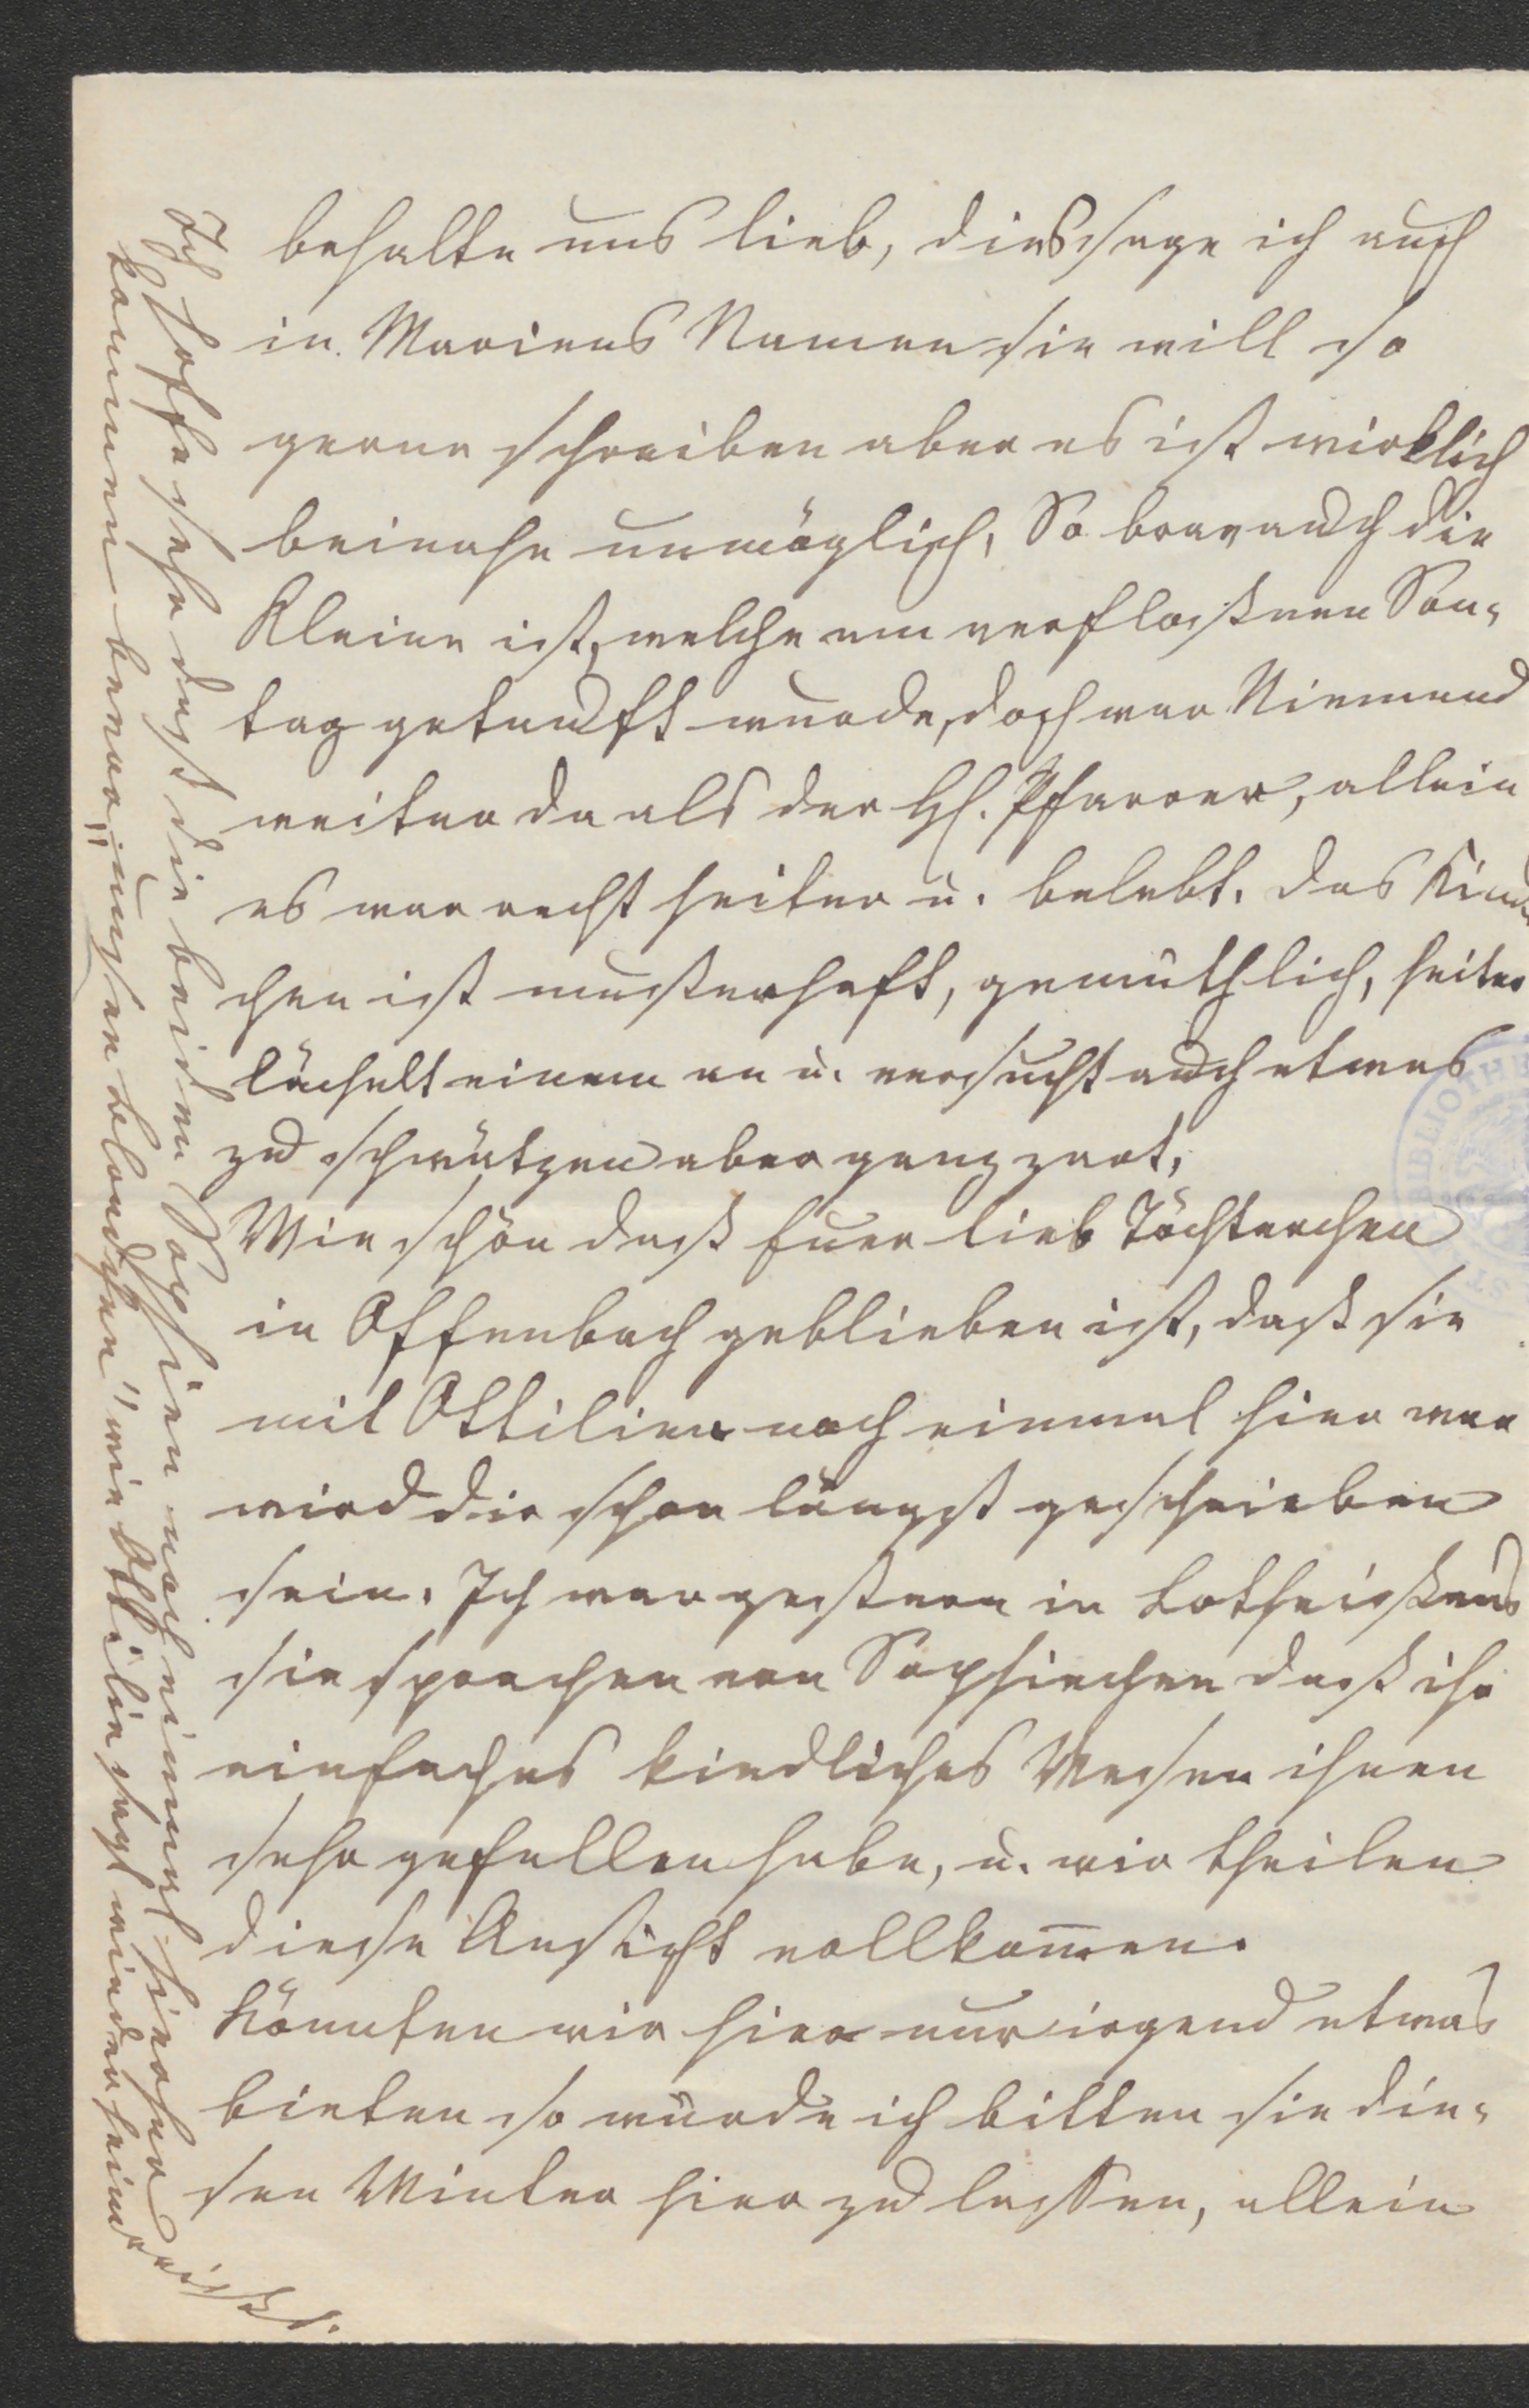 behalte uns lieb, dies sage ich auch
in Mariens Namen sie will so
gerne schreiben aber es ist wirklich
beinahe unmöglich. So brav auch die
Kleine ist, welche am verfloßnen Son-
tag getauft wurde, doch war Niemand
weiter da als der H. Pfarrer, allein
es war recht heiter u. belebt. Das Kind-
chen ist musterhaft, gemüthlich, heiter
lächelt einem an u. versucht auch etwas
zu schwätzen aber ganz zart.
Wie schön daß Euer lieb Töchterchen
in Offenbach geblieben ist, daß sie
mit Ottilien noch einmal hier war
wird dir schon längst geschrieben
sein. Ich war gestern in
sie sprachen von Sophiechen daß ihr
einfaches kindliches Wesen ihnen
sehr gefallen habe, u. wir theilen
diese Ansicht vollkommen.
Könnten wir hier nur irgend etwas
bieten so würde ich bitten sie die-
sen Winter hier zu lassen, allein
Ich hoffe sehr daß die beiden Sophien noch einmal hierher
kommen bevor „unser Blondchen" wie Ottilie sagt wieder heim
reißt.
BIBLIOTHE
ST